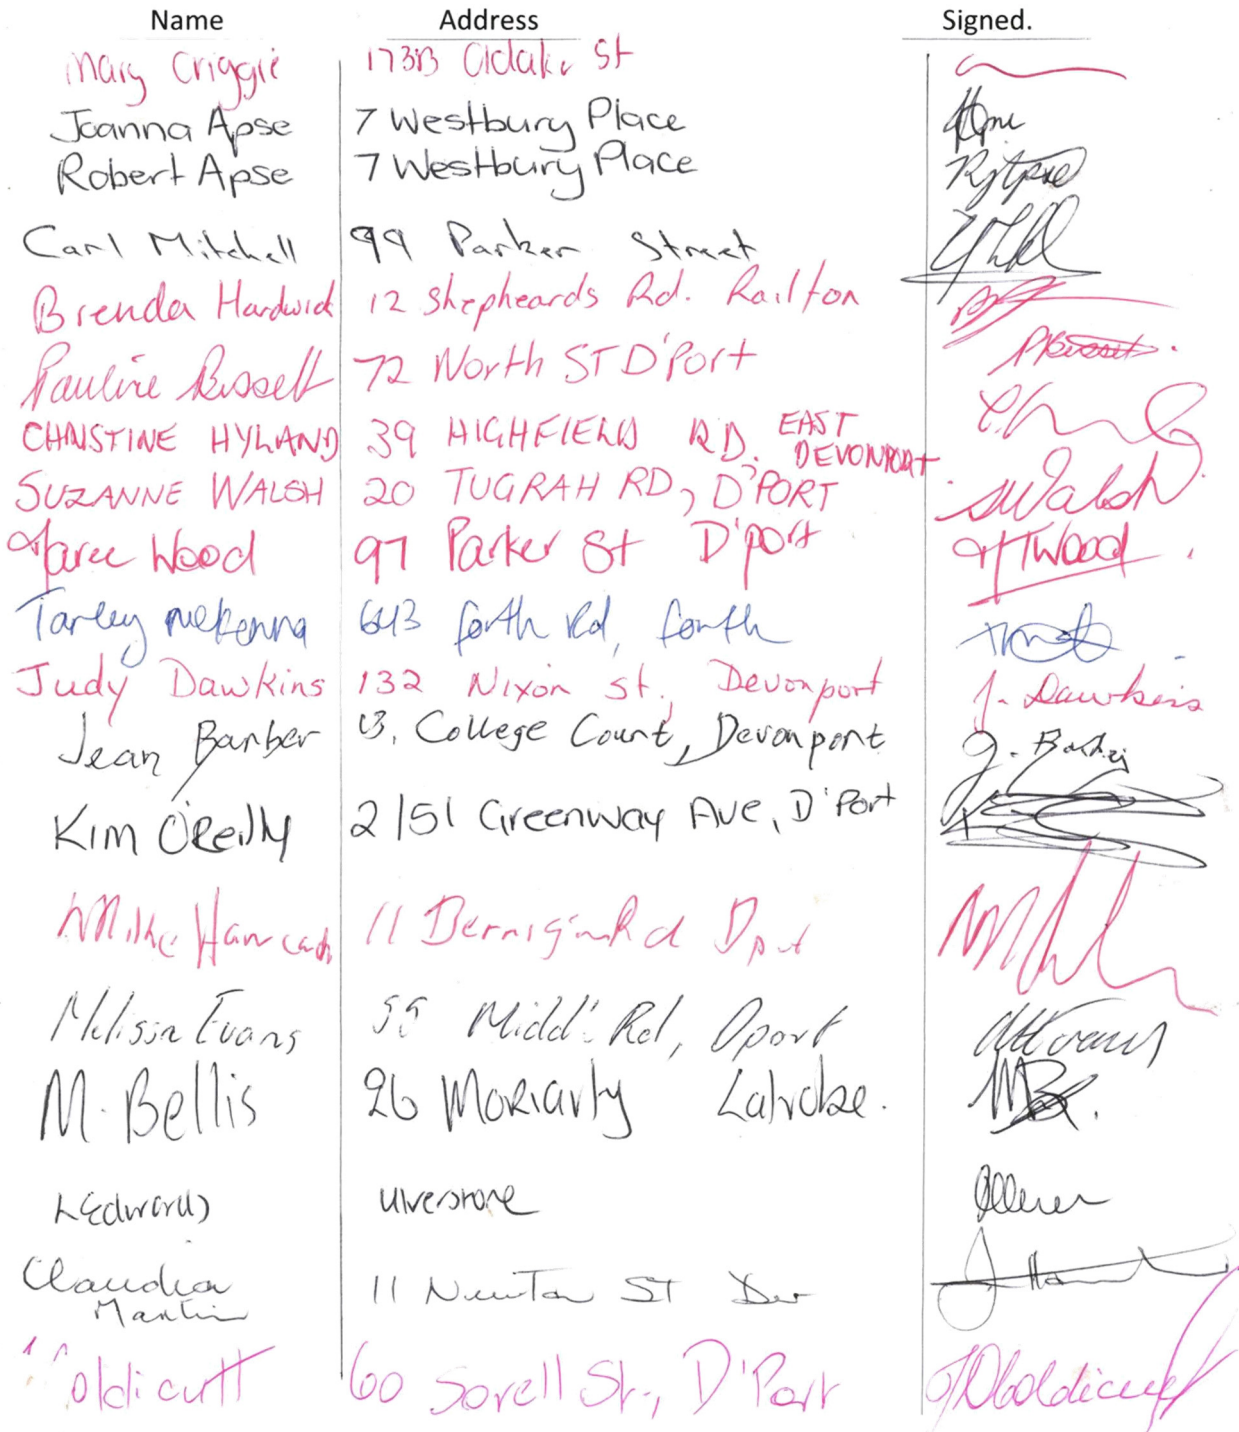 Name Address Signed.
Mary Criggie 173B St
Joanna Apse 7 Westbury Place
Robert Apse 7 Westbury Place
Carl Mitchell 99 Parker Street
Brenda Hardwick 12 Shepheards Rd. Railton
Pauline Bissett 72 North ST D'Port
CHRISTINE HYLAND 39 HIGHFIELD RD. EAST DEVONPORT
SUZANNE WALSH 20 TUGRAH RD, D'PORT SWalsh
Maree Wood 97 Parker St D'port MTWood
Tarley McKenna 643 forth Rd, forth
Judy Dawkins 132 Nixon St., Devonport J. Dawkins
Jean Barber 13, College Court, Devonport J. Barber
Kim O'Reilly 2/51 Greenway Ave, D'Port
Mike 11 Rd Dport
Melissa Evans 55 Rd, Dport MEvans
M. Bellis 26 Moriarty Latrobe. MB.
L Edwards Ulverstone
Claudia Martin 11 Newton ST Dev
60 Sorell St., D'Port